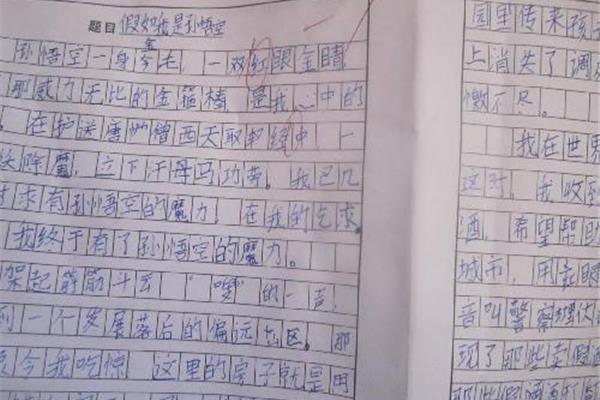 题目 假如我是孙悟空
孙悟空一身金毛，一双红眼金睛
那威力无比的金箍棒 是我心中的
。在护送唐僧西天取经中 一
妖除魔，立下汗母马功劳。我已几
求有孙悟空的魔力 在我的乞求
我终于有了孙悟空的魔力。
架起筋斗云 “嗖”的一声
到一个发展落后的偏远山区。那
令我吃惊 这里的房子就是用
园里传来孩
上消失了 调
不尽。
我在世界
这时，我收到
酒，希望帮助
城市，用
音叫警察埋伏
现了那些卖假
那些假酒